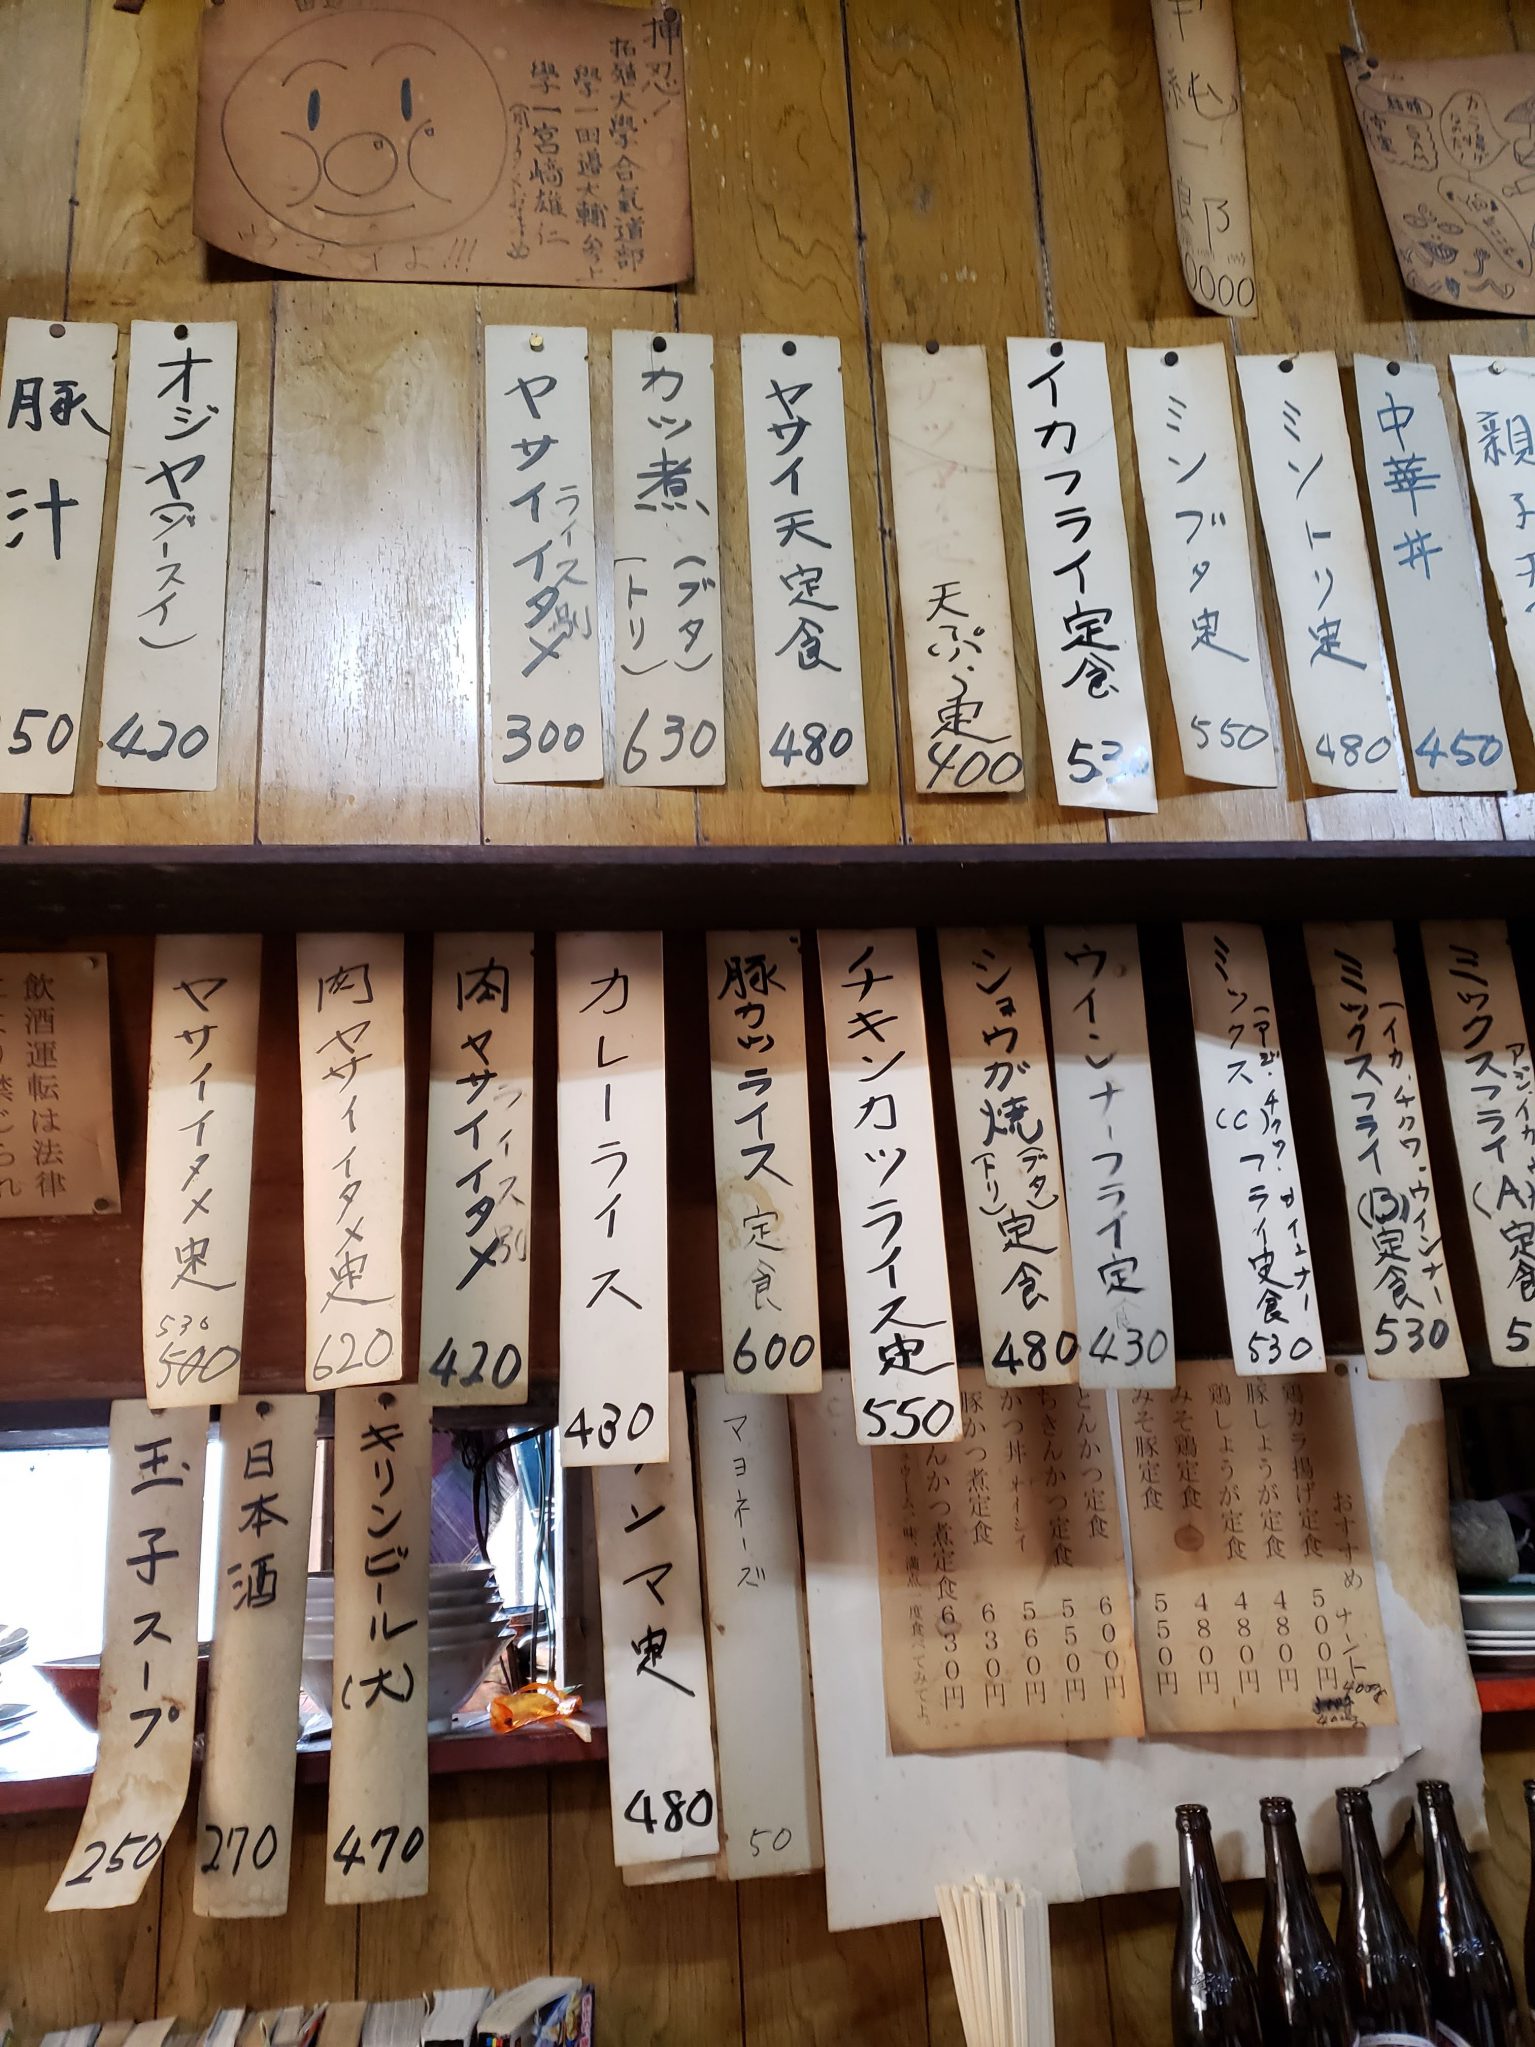 押忍!
拓殖大學合氣道部
學一田邊大輔参上
學一宮崎雄仁
ウマイよ!!!
0000
豚汁
50
オジヤ(ゾースイ)
420
ヤサイイタメ
ライス別
300
カツ煮(ブタ)(トリ)
630
ヤサイ天定食
480
天ぷら定
400
イカフライ定食
530
ミソブタ定
550
ミソトリ定
480
中華丼
450
親子
飲酒運転は法律
により禁じられ
ヤサイイタメ定
530
500
肉ヤサイイタメ定
620
肉ヤサイイタメ
ライス別
420
カレーライス
430
豚カツライス定食
600
チキンカツライス定
550
ショウガ焼(ブタ)(トリ)定食
480
ウインナーフライ定食
430
ミックス(C)フライ定食
(アジ・チクワ・ウインナー
530
ミックスフライ(B)定食
(イカ、チクワ、ウインナー
530
ミックスフライ(A)定食
アジ、イカ
5
玉子スープ
250
日本酒
270
キリンビール(大)
470
ンマ定
480
マヨネーズ
50
おすすめ
鶏カラ揚げ定食 500円
豚しょうが定食 480円
鶏しょうが定食 480円
みそ鶏定食 480円
みそ豚定食 550円
とんかつ定食 600円
ちきんかつ定食 550円
かつ丼 オイシイ 560円
豚かつ煮定食 630円
んかつ煮定食 630円